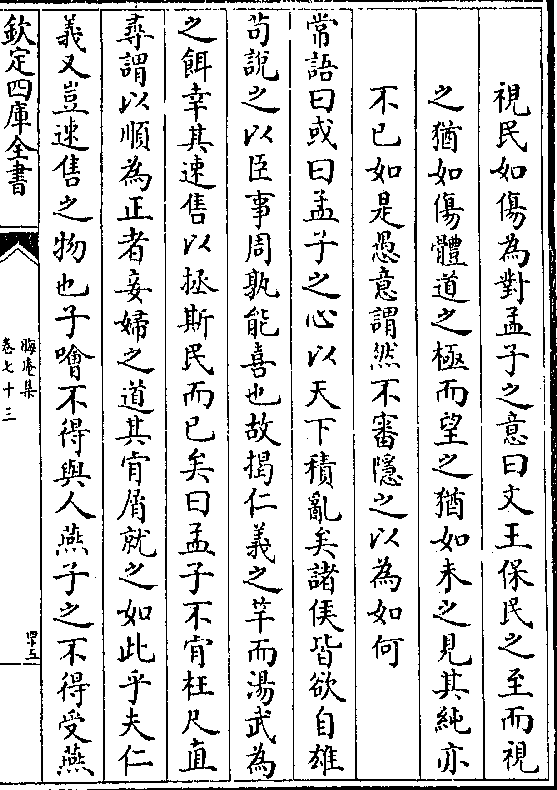 視民如傷為對孟子之意曰文王保民之至而視
之猶如傷體道之極而望之猶如未之見其純亦
不已如是愚意謂然不審隱之以為如何
常語曰或曰孟子之心以天下積亂矣諸侯皆欲自雄
茍說之以臣事周孰能喜也故揭仁義之竿而湯武為
之餌幸其速售以拯斯民而已矣曰孟子不肯枉尺直
尋謂以順為正者妾婦之道其肯屑就之如此乎夫仁
義又豈速售之物也子噲不得與人燕子之不得受燕
欽定四庫全書
晦庵集
卷七十三
四十五